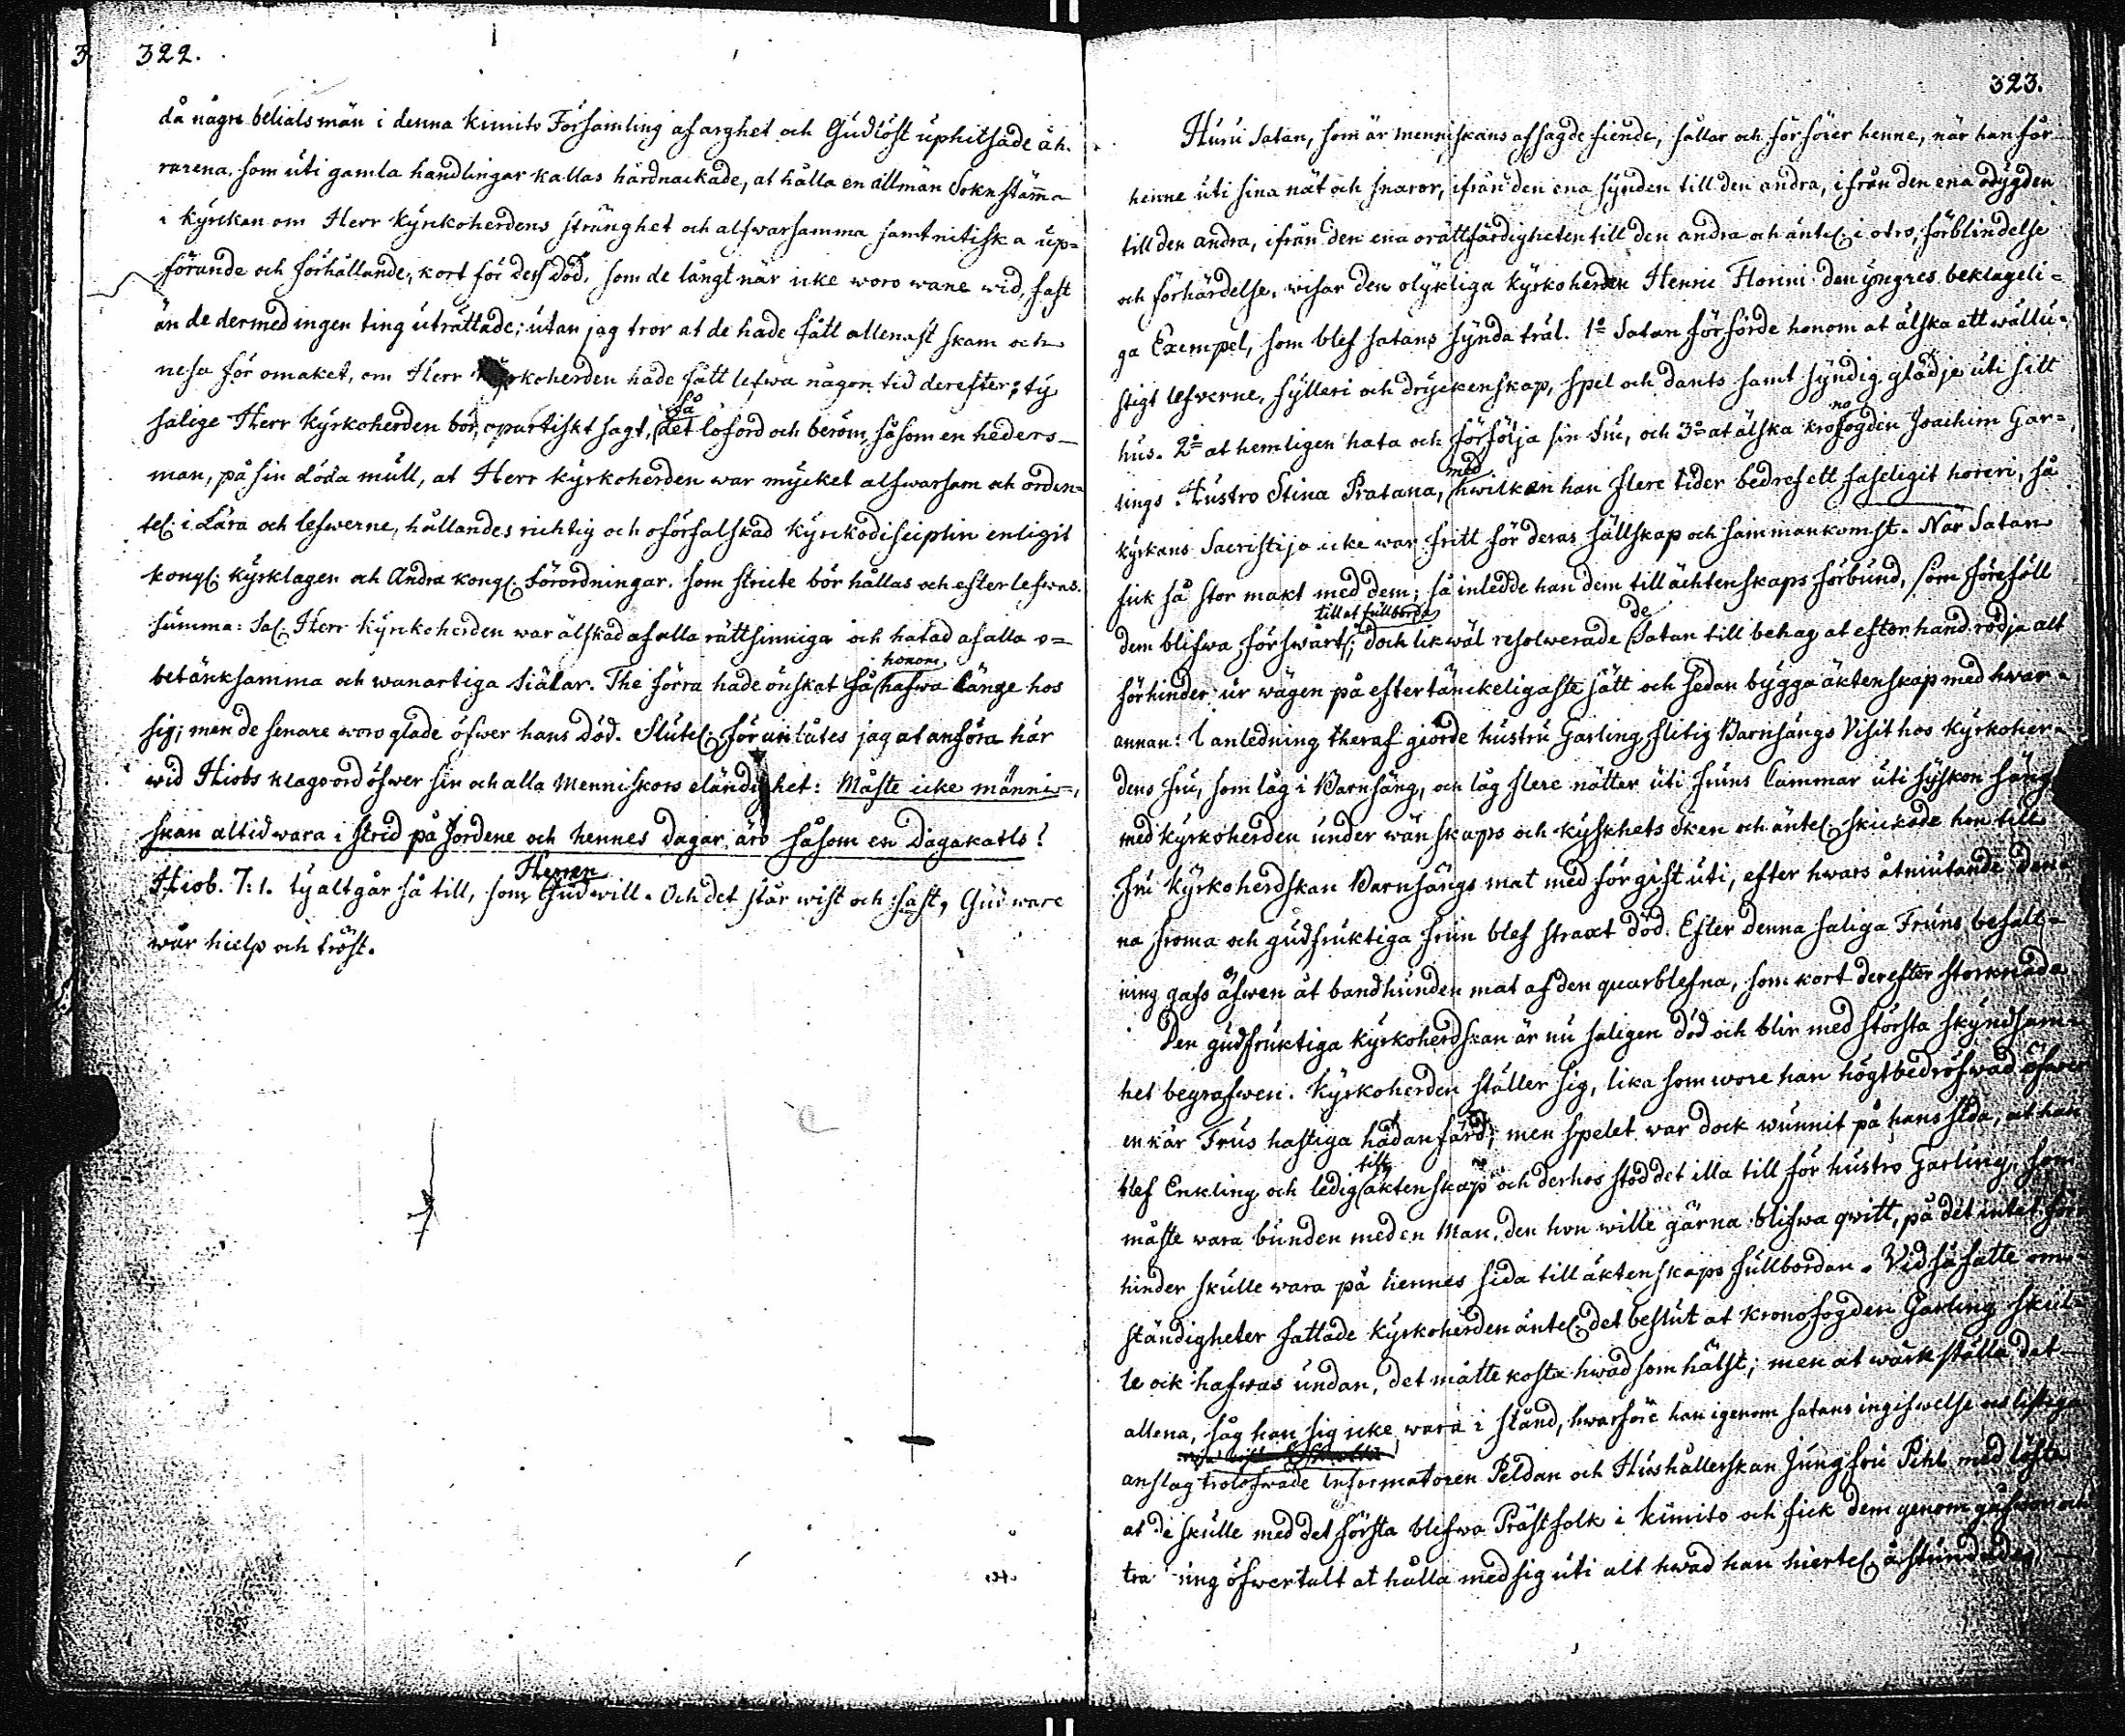 322.
då någre belials män i denna Kimito Församling af arghet och Gudlöst uphitsade åh-
rarena. som uti gamla handlingar kallas hårdnackade, at hålla en allmän Soknstäma
i kyrckan om Herr Kyrckoherdens stränghet och alfwarsamma samt nitiska up=
förande och förhållande, kort för dess död, som de långt när icke woro wane wid, fast
än de dermed ingen ting uträttade; utan jag tror at de hade fått allenast skam och
nesa för omaket, om Herr Kyrkoherden hade fått lefwa någon tid derefter; ty
salige Herr Kyrkoherden bör, opartiskt sagt, få det loford och beröm, såsom en heders-
man, på sin döda mull, at Herr Kyrkoherden war mycket alfwarsam och orden=
tel: i Lära och lefwerne, hållandes richtig och oförfalskad Kyrckodisciplin enligit
kongl: Kyrklagen och Andra kongl: förordningar. som stricte bör hållas och efterlefwas.
summa: Sal: Herr Kyrckoherden war älskad af alla rättsinniga och hatad af alla o=
betänksamma och wanartiga Siälar. The förra hade önskat få honom hafwa länge hos
sig; men de senare woro glade öfwer hans död. Slutel: förunlåtes jag at anföra här
wid Hiobs klagoord öfwer sin och alla Menniskors eländighet: Måste icke männi=
skan altid wara i strid på Jordene och hennes Dagar äro såsom en Dagakarls?
Hiob. 7:1. ty alt går så till, som Herren Gud will. Och det står wist och fast, Gud ware
wår hielp och tröst.
323.
Huru Satan, som är menniskans afsagde fiende, fållar och förförer henne, när han får
henne uti sina nät och snaror, ifrån den ena synden till den andra, ifrån den ena odygden
till den andra, ifrån den ena orättfärdigheten till den andra och äntel: i otro, förblindelse
och förhärdelse, wisar den olykliga Kyrkoherden Henric Florini den yngres beklageli=
ga Exempel, som blef satans synda träl. 1o Satan förförde honom at älska ett wällu=
stigt lefwerne, fylleri och dryckenskap, spel och dants samt syndig glädje uti sitt
hus. 2o at hemligen hata och förfölja sin Fru, och 3o at älska kronofogden Joachim Gar=
lings Hustro Stina Pratana, med hwilken han flere tider bedref ett faselegit horeri, så
kyrkans Sacristija icke war fritt för deras sällskap och sammankomst. När Satan
fick så stor makt med dem; så inledde han dem till ächtenskaps förbund, som föreföll
dem blifwa förswårt till at fullborda; doch likwäl resolwerade de Satan till behag at efter hand rödja alt
förhinder ur wägen på eftertänckeligaste sätt och sedan bygga äktenskap med hwar-
annan: I anledning theraf giorde hustru Garling flitig Barnsängs Visit hos Kyrkoher=
dens Fru, som låg i Barnsäng, och låg flere nätter uti Fruns Cammar uti syskon säng
med Kyrkoherden under wänskaps och kyskhets sken och äntel: skickade hon till
Fru Kyrkoherdskan Barnsängs mat med förgift uti, efter hwars åtniutande den=
na froma och gudfruktiga Frun blef straxt död. Efter denna saliga Fruns befalt=
ning gafs äfwen åt bandhunden mat af den quarblefna, som kort derefter storknade
Den gudfruktiga Kyrkoherdskan är nu saligen död och blir med största skyndsam=
het begrafwen. Kyrkoherden ställer sig, lika som wore han högtbedröfwad öfwer
en kär Frus hastiga hädanfärd; men spelet war dock wunnit på hans sida, at han
blef Enkling och ledig till äktenskap och derhos stod det illa till för hustro Garling, som
måste wara bunden med en Man, den hon wille gärna blifwa qwitt, på det intet för=
hinder skulle wara på hennes sida till äktenskaps fullbordan. Vid så fatte om=
ständigheter fattade Kyrkoherden äntel: det beslut at kronofogden Garling skul=
le ock hafwas undan, det måtte kosta hwad som hälst; men at wärkställa det
allena, såg han sig icke wara i stånd, hwarföre han igenom satans ingifwelse och listiga
anslag trolofwade Informatoren Peldan och Hushållerskan Jungfru Pihl med löfte
at de skulle med det första blifwa Prästfolk i Kimito och fick dem genom gåfwor och
tra ing öfwertalt at hålla med sig uti alt hwad han hiertel: åstundade